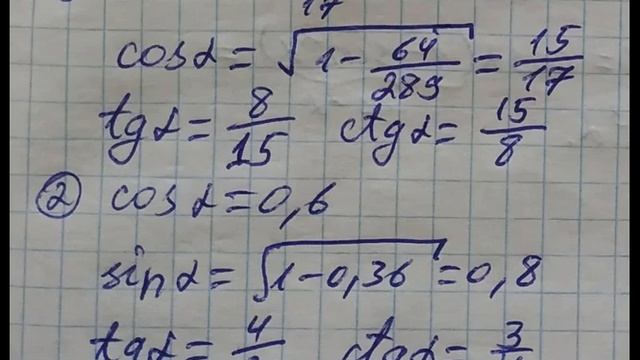 17
cosα = √(1 - 64/289) = 15/17
tgα = 8/15 ctgα = 15/8
② cosα = 0,6
sinα = √(1 - 0,36) = 0,8
tgα = 4/ ctgα = 3/